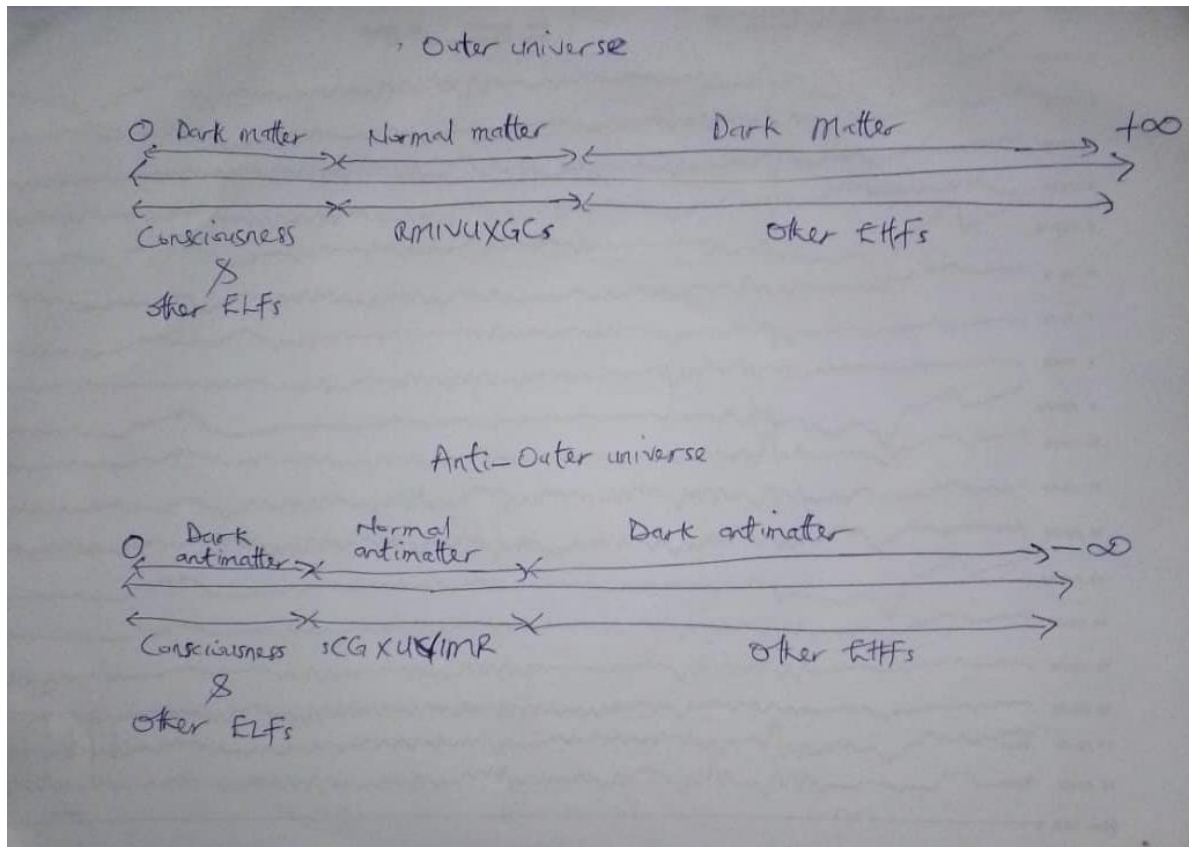 Outer universe
O Dark matter Normal matter Dark Matter +∞
Consciousness RMIVUXGCs Other EHFs
&
other ELFs
Anti-Outer universe
O Dark antimatter Normal antimatter Dark antimatter -∞
Consciousness Other EHFs
&
Other ELFs